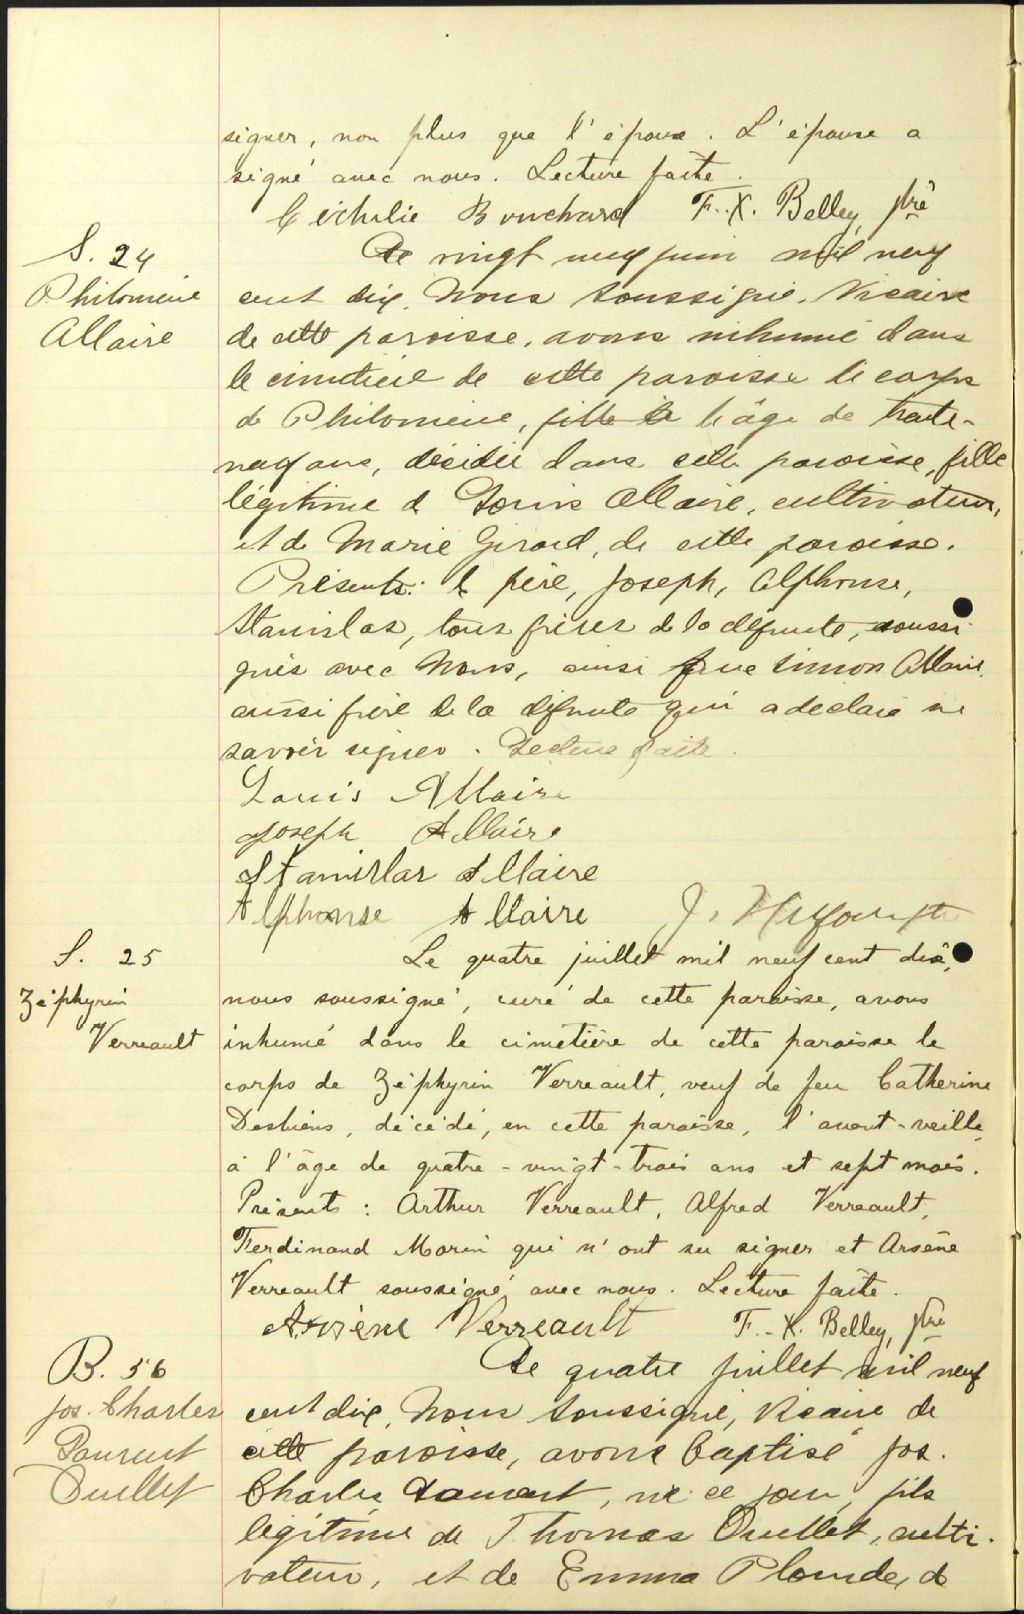 signer, non plus que l'époux. L'épouse a
signé avec nous. Lecture faite.
Bouchard F.-X. Belley, ptre
S. 24
Philomène
Allaire
Le vingt neuf juin mil neuf
cent dix, Nous soussigné, Vicaire
de cette paroisse, avons inhumé dans
le cimetière de cette paroisse le corps
de Philomène, fille à l'âge de trente-
neuf ans, décédée dans cette paroisse, fille
légitime de Louis Allaire, cultivateur,
et de Marie Girard, de cette paroisse.
Présents: le père, Joseph, Alphonse,
Stanislas, tous frères de la défunte, soussi
gnés avec Nous, ainsi que Simon Allaire,
aussi frère de la défunte qui a déclaré ne
savoir signer. Lecture faite.
Louis Allaire
Joseph Allaire
Stanislas Allaire
Alphonse Allaire J.
S. 25
Zéphyrin
Verreault
Le quatre juillet mil neuf cent dix,
nous soussigné, curé de cette paroisse, avons
inhumé dans le cimetière de cette paroisse le
corps de Zéphyrin Verreault, veuf de feu Catherine
Desbiens, décédé, en cette paroisse, l'avant-veille,
à l'âge de quatre-vingt-trois ans et sept mois.
Présents: Arthur Verreault, Alfred Verreault,
Ferdinand Morin qui n'ont su signer et Arsène
Verreault soussigné avec nous. Lecture faite.
Arsène Verreault F.-X. Belley, ptre
B. 56
Jos. Charles
Laurent
Ouellet
Le quatre juillet mil neuf
cent dix, Nous soussigné, Vicaire de
cette paroisse, avons baptisé Jos.
Charles Laurent, né ce jour, fils
légitime de Thomas Ouellet, culti-
vateur, et de Emma Plourde, de